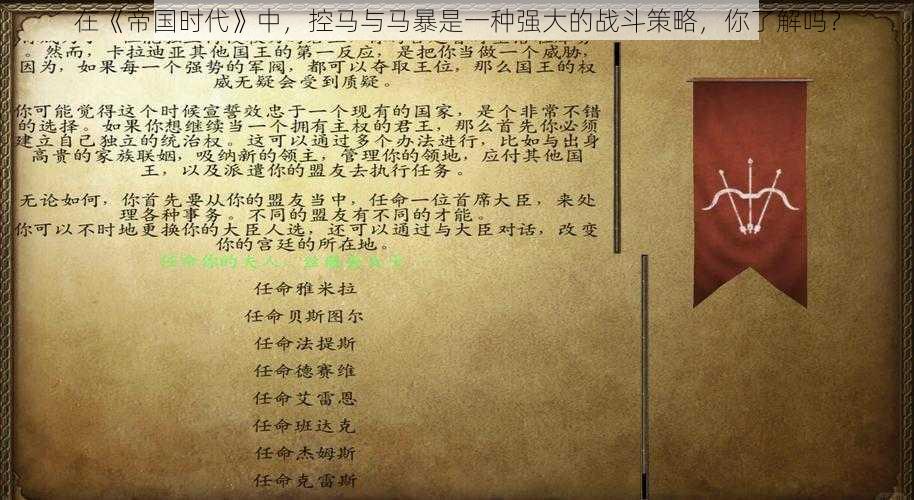 在《帝国时代》中，控马与马暴是一种强大的战斗策略，你了解吗？
。然而，卡拉迪亚其他国王的第一反应，是把你当做一个威胁，
因为，如果每一个强势的军阀，都可以夺取王位，那么国王的权
威无疑会受到质疑。
你可能觉得这个时候宣誓效忠于一个现有的国家，是个非常不错
的选择。如果你想继续当一个拥有主权的君王，那么首先你必须
建立自己独立的统治权。这可以通过多个办法进行，比如与出身
高贵的家族联姻，吸纳新的领主，管理你的领地，应付其他国
王，以及派遣你的盟友去执行任务。
无论如何，你首先要从你的盟友当中，任命一位首席大臣，来处
理各种事务。不同的盟友有不同的才能。
你可以不时地更换你的大臣人选，还可以通过与大臣对话，改变
你的宫廷的所在地。
任命你的夫人，
任命雅米拉
任命贝斯图尔
任命法提斯
任命德赛维
任命艾雷恩
任命班达克
任命杰姆斯
任命克雷斯